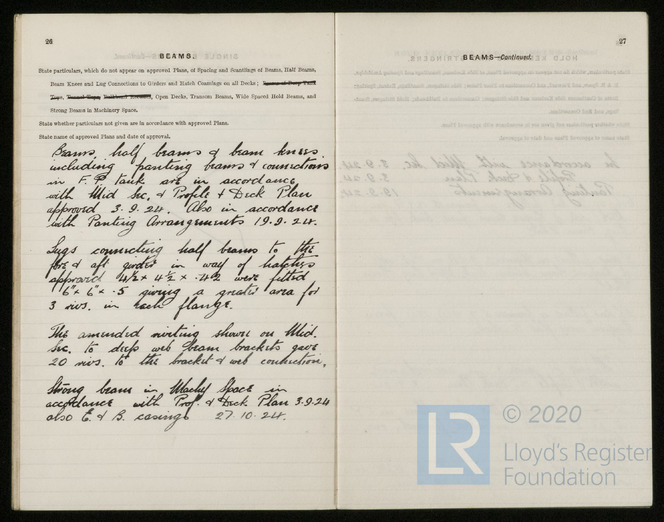 26
BEAMS.
State particulars, which do not appear on approved Plans, of Spacing and Scantlings of Beams, Half Beams,
Beam Knees and Lug Connections to Girders and Hatch Coamings on all Decks;
Open Decks, Transom Beams, Wide Spaced Hold Beams, and
Strong Beams in Machinery Space.
State whether particulars not given are in accordance with approved Plans.
State name of approved Plans and date of approval.
Beams, half beams & beam knees
including panting beams & connections
in F.P. tank are in accordance
with Mid Sec. & Profile & Deck Plan
approved 3.9.24. Also in accordance
with Panting Arrangements 19.9.24.
Lugs connecting half beams to the
fore & aft girder in way of hatches
approved 4½ x 4½ x .42 were fitted
6" x 6" x .5 giving a greater area for
3 rivs. in each flange.
The amended riveting shown on Mid.
Sec. to deep web beam brackets gave
20 rivs. to the bracket & web connection.
Strong beam in Machy Space in
accordance with Prof. & Deck Plan 3.9.24
also E. & B. casings 27.10.24.
27
BEAMS—Continued.
© 2020
LR
Lloyd's Register
Foundation